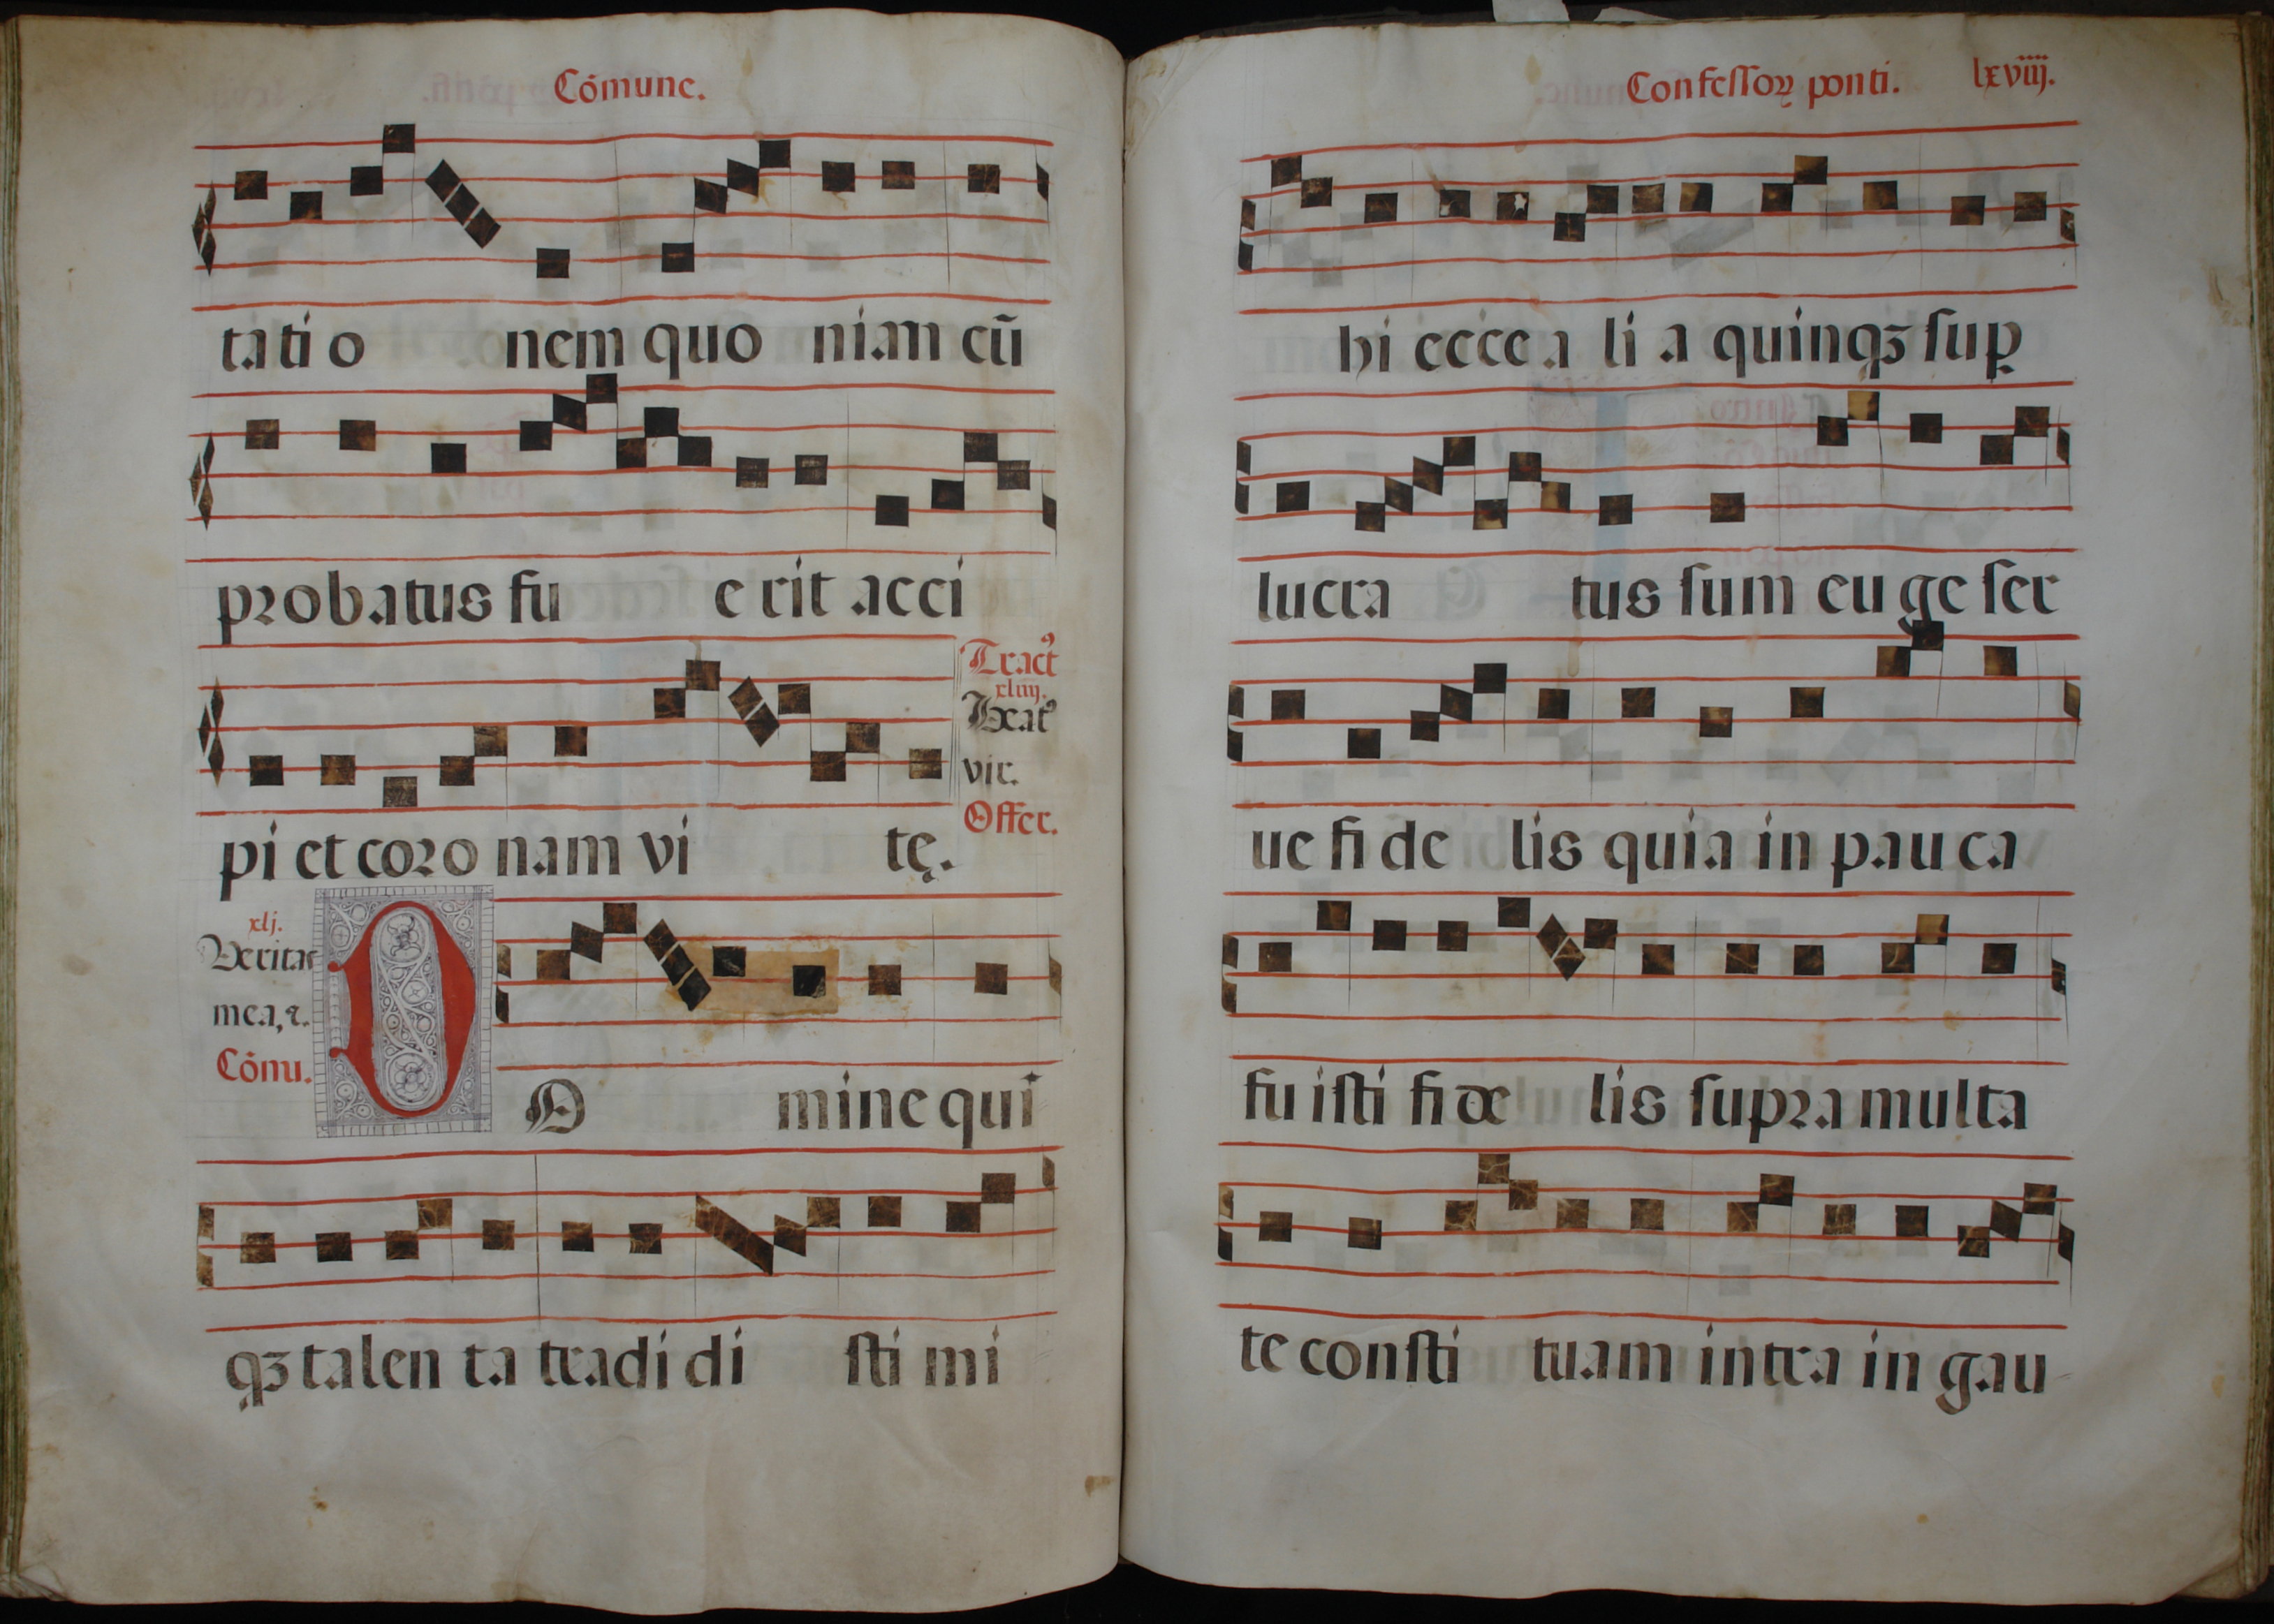 Cōmune.
tati o nem quo niam cū
probatus fu e rit acci
Tractꝰ
xliiij.
Beatꝰ
vir.
Offer.
pi et coro nam vi tę.
xlj.
Veritas
mea, ⁊.
Cōmu.
D O mine qui
qꝫ talen ta tradi di sti mi
Confessoꝝ ponti. lxviiij.
hi ecce a li a quinqꝫ suꝑ
lucra tus sum eu ge ser
ue fi de lis quia in pau ca
fu isti fi de lis supra multa
te consti tuam intra in gau